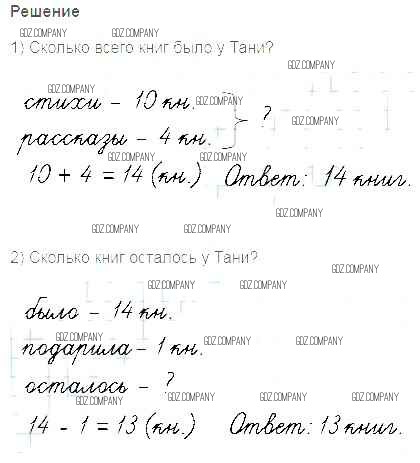 Решение
GDZ.COMPANY GDZ.COMPANY
1) Сколько всего книг было у Тани?
GDZ.COMPANY
GDZ.COMPANY
стихи - 10 кн. GDZ.COMPANY
} ? GDZ.COMPANY
рассказы - 4 кн.
GDZ.COMPANY GDZ.COMPANY
10 + 4 = 14 (кн.) Ответ: 14 книг.
GDZ.COMPANY GDZ.COMPANY
GDZ.COMPANY GDZ.COMPANY
2) Сколько книг осталось у Тани?
GDZ.COMPANY
GDZ.COMPANY GDZ.COMPANY
было - 14 кн.
GDZ.COMPANY GDZ.COMPANY
подарила - 1 кн.
GDZ.COMPANY
осталось - ?
GDZ.COMPANY GDZ.COMPANY GDZ.COMPANY
14 - 1 = 13 (кн.) Ответ: 13 книг.
GDZ.COMPANY GDZ.COMPANY